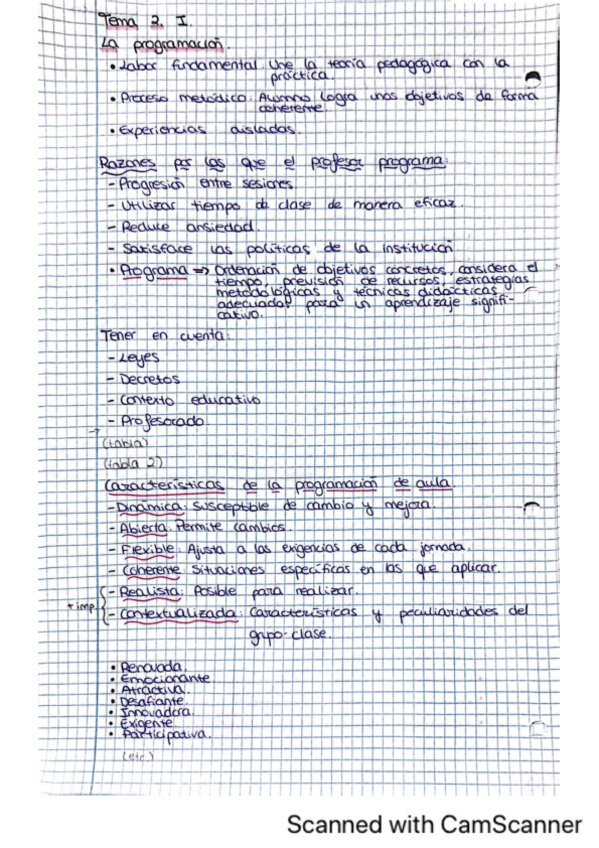 Tema 2. I.
La programación.
• Labor fundamental. Une la teoría pedagógica con la
práctica.
• Proceso metódico. Alumno logra unos objetivos de forma
coherente.
• Experiencias aisladas.
Razones por las que el profesor programa:
- Progresión entre sesiones.
- Utilizar tiempo de clase de manera eficaz.
- Reduce ansiedad.
- Satisface las políticas de la institución
• Programa => Ordenación de objetivos concretos, considera el
tiempo, previsión de recursos, estrategias
metodológicas y técnicas didácticas
adecuadas para un aprendizaje signifi-
cativo.
Tener en cuenta:
- Leyes
- Decretos
- Contexto educativo
- Profesorado
→
(tabla)
(tabla 2)
Características de la programación de aula.
- Dinámica: Susceptible de cambio y mejora.
- Abierta: Permite cambios.
- Flexible: Ajusta a las exigencias de cada jornada.
- Coherente: Situaciones específicas en las que aplicar.
- Realista: Posible para realizar.
+ imp. - Contextualizada: Características y peculiaridades del
grupo-clase.
• Renovada.
• Emocionante
• Atractiva.
• Desafiante.
• Innovadora.
• Exigente
• Participativa.
(etc)
Scanned with CamScanner